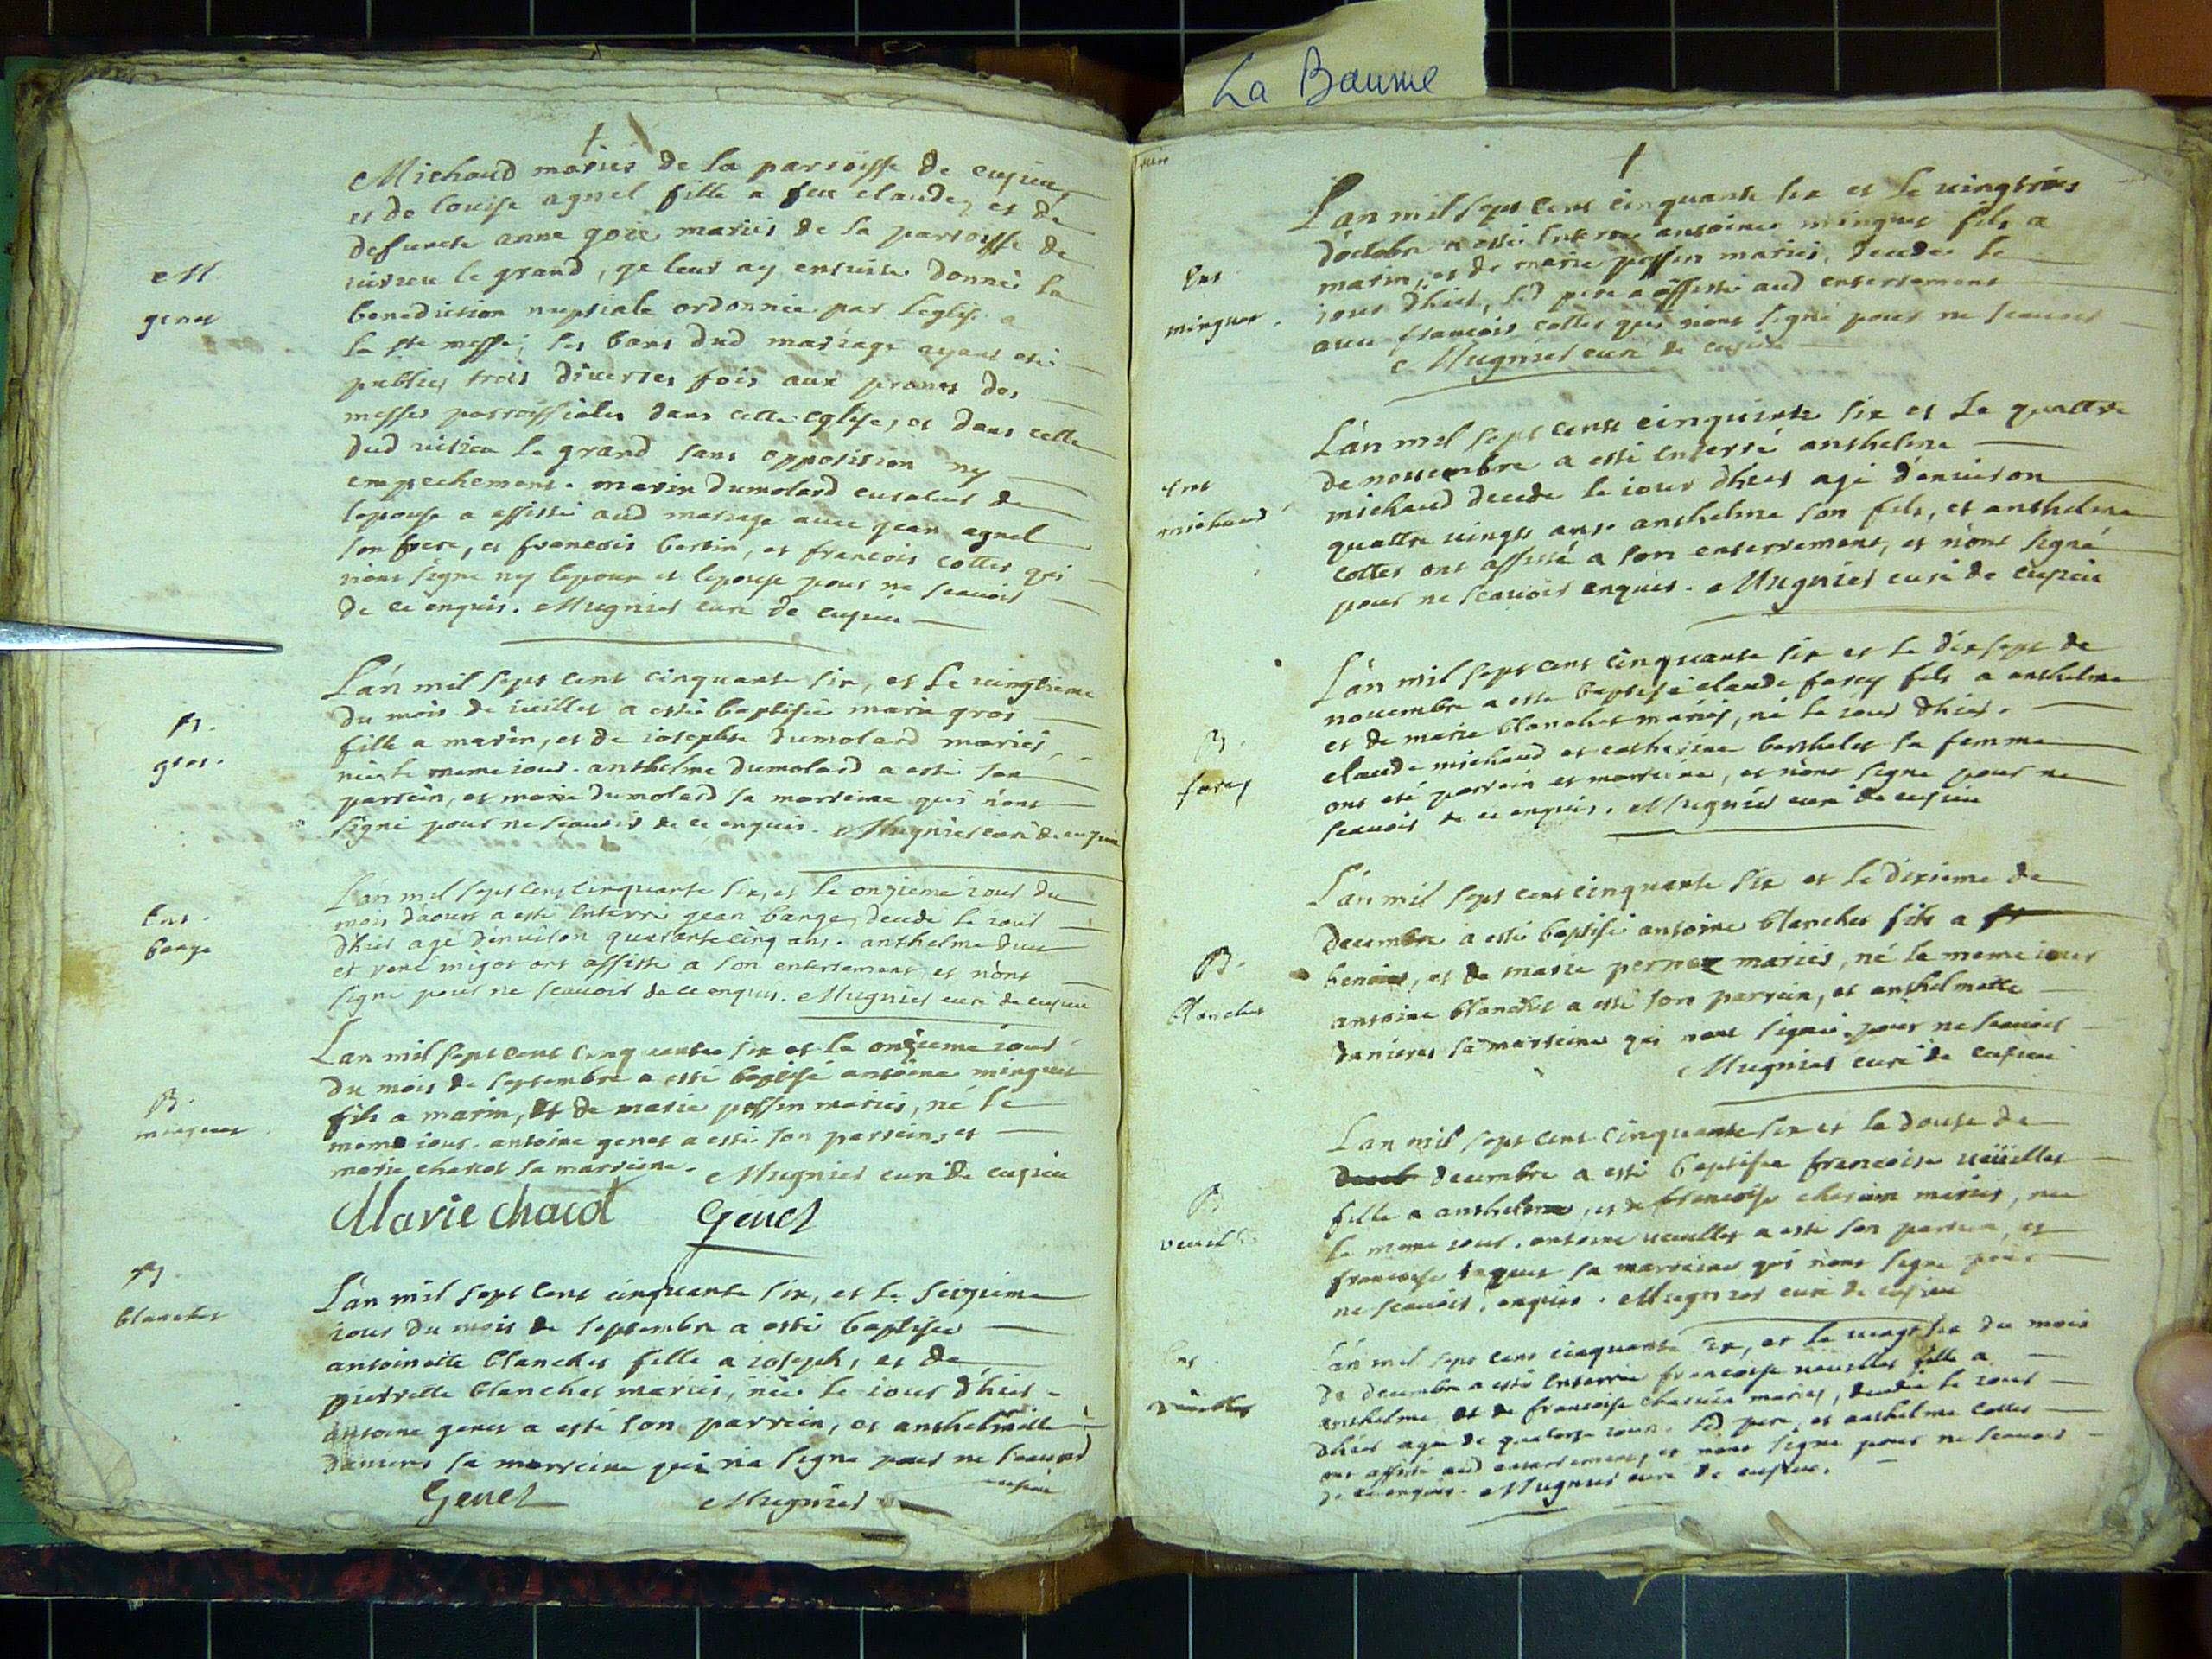 La Baume
Michaud mariés de la parroisse de cuzieu,
et de louise agnel fille a feu claude, et de
defuncte anne goix mariés de la parroisse de
virieu le grand, je leur ay ensuitte donné la
M
genet
benediction nuptiale ordonnée par leglise a
la ste messe, les bans dud mariage ayant esté
publiés trois diverses fois aux prones des
messes parroissiales dans cette eglise, et dans celle
dud virieu le grand sans opposition ny
empechement. marin dumolard curateur de
lepouse a assisté aud mariage avec jean agnel
son frere, et francois bertin, et francois collet qui
n'ont signé ny lepoux et lepouse pour ne scavoir
de ce enquis. Mugnier curé de cuzieu
L'an mil sept cent cinquante six, et le vingtieme
du mois de juillet a esté baptisée marie gros
B.
gros.
fille a marin, et de josephte dumolard mariés,
née le meme jour. anthelme dumolard a esté son
parrein, et marie dumolard sa marreine qui n'ont
signé pour ne scavoir de ce enquis. Mugnier curé de cuzieu
L'an mil sept cent cinquante six, et le onzieme jour du
Ent.
barge
mois d'aoust a esté enterré jean barge, decede le jour
d'hier agé d'environ quarante cinq ans. anthelme
et rené migot ont assisté a son enterrement et n'ont
signé pour ne scavoir de ce enquis. Mugnier curé de cuzieu
L'an mil sept cent cinquante six et le onzieme jour
du mois de septembre a esté baptisé antoine minguet
B.
minguet
fils a marin, et de marie possin mariés, né le
meme jour. antoine genet a esté son parrein, et
marie chacot sa marreine. Mugnier curé de cuzieu
Marie chacot Genet
B
blanchet
L'an mil sept cent cinquante six, et le seizieme
jour du mois de septembre a esté baptisée
antoinette blanchet fille a joseph, et de
pierrette blanchet mariés, née le jour d'hier
antoine genet a esté son parrein, et anthelmette
danieres sa marreine qui n'a signé pour ne scavoir
Genet Mugnier cuzieu
L'an mil sept cent cinquante six et le vingtrois
d'octobre a esté enterré antoine minguet fils a
Ent.
minguet.
marin, et de marie possin mariés, decedé le
jour d'hier, led pere a assisté aud enterrement
avec francois collet qui n'ont signé pour ne scavoir
Mugnier curé de cuzieu
L'an mil sept cent cinquante six et le quattre
de novembre a esté enterré anthelme
Ent
michaud
michaud decedé le jour d'hier agé d'environ
quattre vingts ans. anthelme son fils, et anthelme
collet ont assisté a son enterrement, et n'ont signé
pour ne scavoir enquis. Mugnier curé de cuzieu
L'an mil sept cent cinquante six et le dixsept de
novembre a esté baptisé claude farcy fils a anthelme
B.
farcy
et de marie blanchet mariés, né le jour d'hier.
claude michaud et catherine berthelet sa femme
ont esté parrein et marreine, et n'ont signé pour ne
scavoir de ce enquis. Mugnier curé de cuzieu
L'an mil sept cent cinquante six et le dixieme de
decembre a esté baptisé antoine blanchet fils a
B.
blanchet
benoit, et de marie pernoz mariés, né le meme jour
antoine blanchet a esté son parrein, et anthelmette
danieres sa marreine qui n'ont signé pour ne scavoir
Mugnier curé de cuzieu
L'an mil sept cent cinquante six et le douze de
decemb decembre a esté baptisée francoise veüillet
B
veuillet
fille a anthelme, et de francoise charvin mariés, née
le meme jour. antoine veuillet a esté son parrein, et
francoise sa marreine qui n'ont signé pour
ne scavoir enquis. Mugnier curé de cuzieu
L'an mil sept cent cinquante six, et le vingt six du mois
Ent.
veuillet
de decembre a esté enterrée francoise veuillet fille a
anthelme et de francoise charvin mariés, decedée le jour
d'hier agée de quatorze jours. led pere, et anthelme collet
ont assisté aud enterrement, et n'ont signé pour ne scavoir
de ce enquis. Mugnier curé de cuzieu.